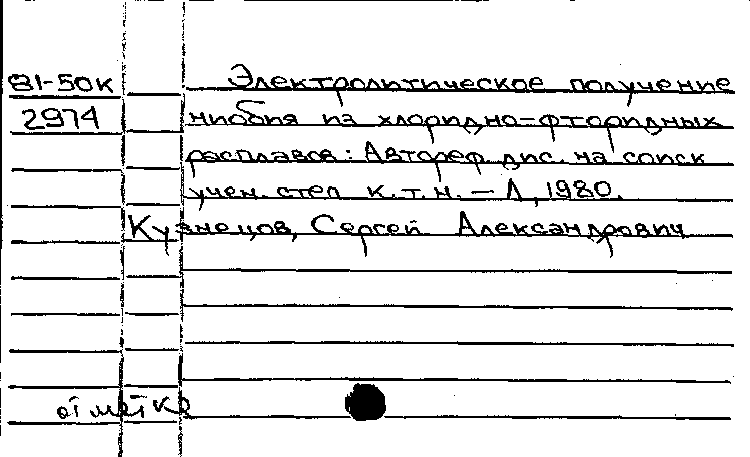 81-50к Электролитическое получение
2974 ниобия из хлоридно-фторидных
расплавов: Автореф. дис. на соиск
учен. степ к.т.н. – Л, 1980.
Кузнецов, Сергей Александрович
отметке